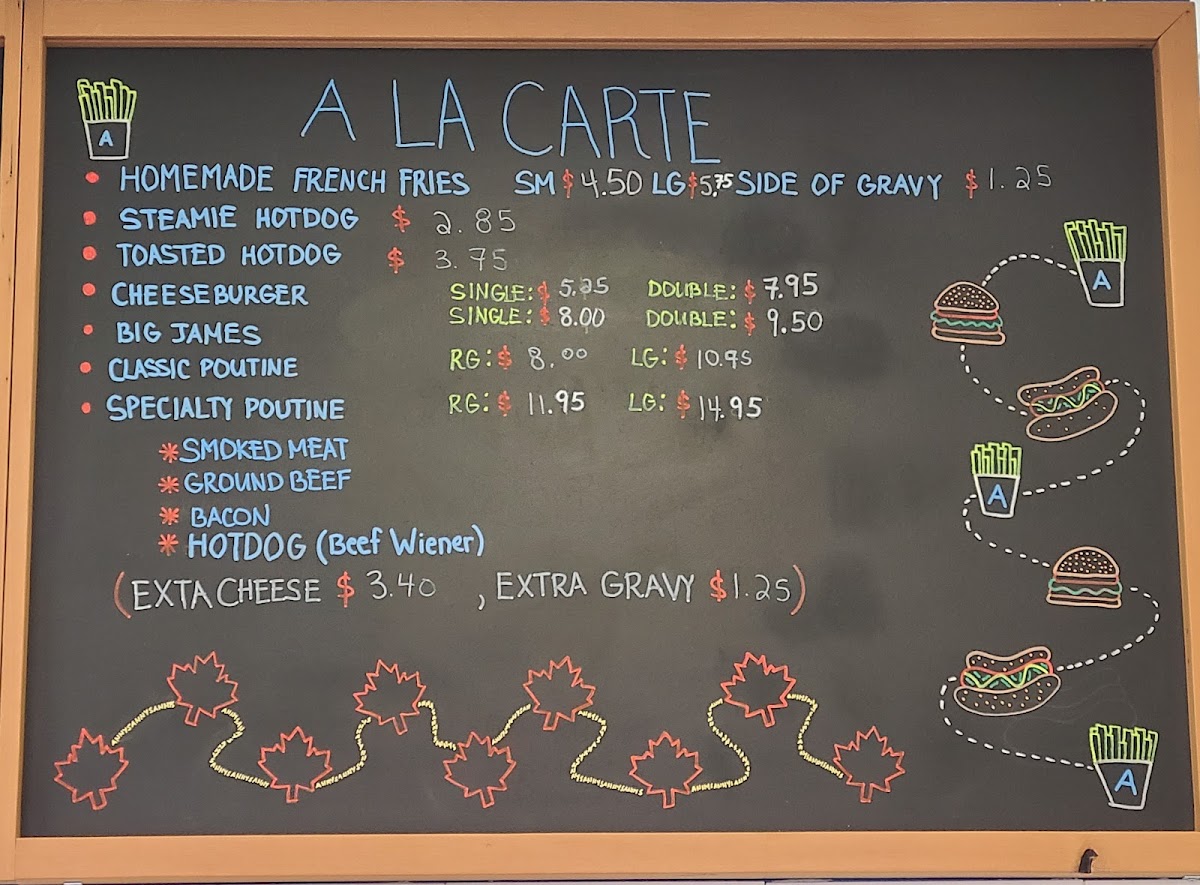 A LA CARTE
A
• HOMEMADE FRENCH FRIES SM $4.50 LG $5.75 SIDE OF GRAVY $1.25
• STEAMIE HOTDOG $ 2.85
• TOASTED HOTDOG $ 3.75
• CHEESEBURGER SINGLE: $ 5.25 DOUBLE: $ 7.95
• BIG JAMES SINGLE: $ 8.00 DOUBLE: $ 9.50
• CLASSIC POUTINE RG: $ 8.00 LG: $ 10.95
• SPECIALTY POUTINE RG: $ 11.95 LG: $ 14.95
* SMOKED MEAT
* GROUND BEEF
* BACON
* HOTDOG (Beef Wiener)
(EXTA CHEESE $ 3.40 , EXTRA GRAVY $1.25)
A
A
A